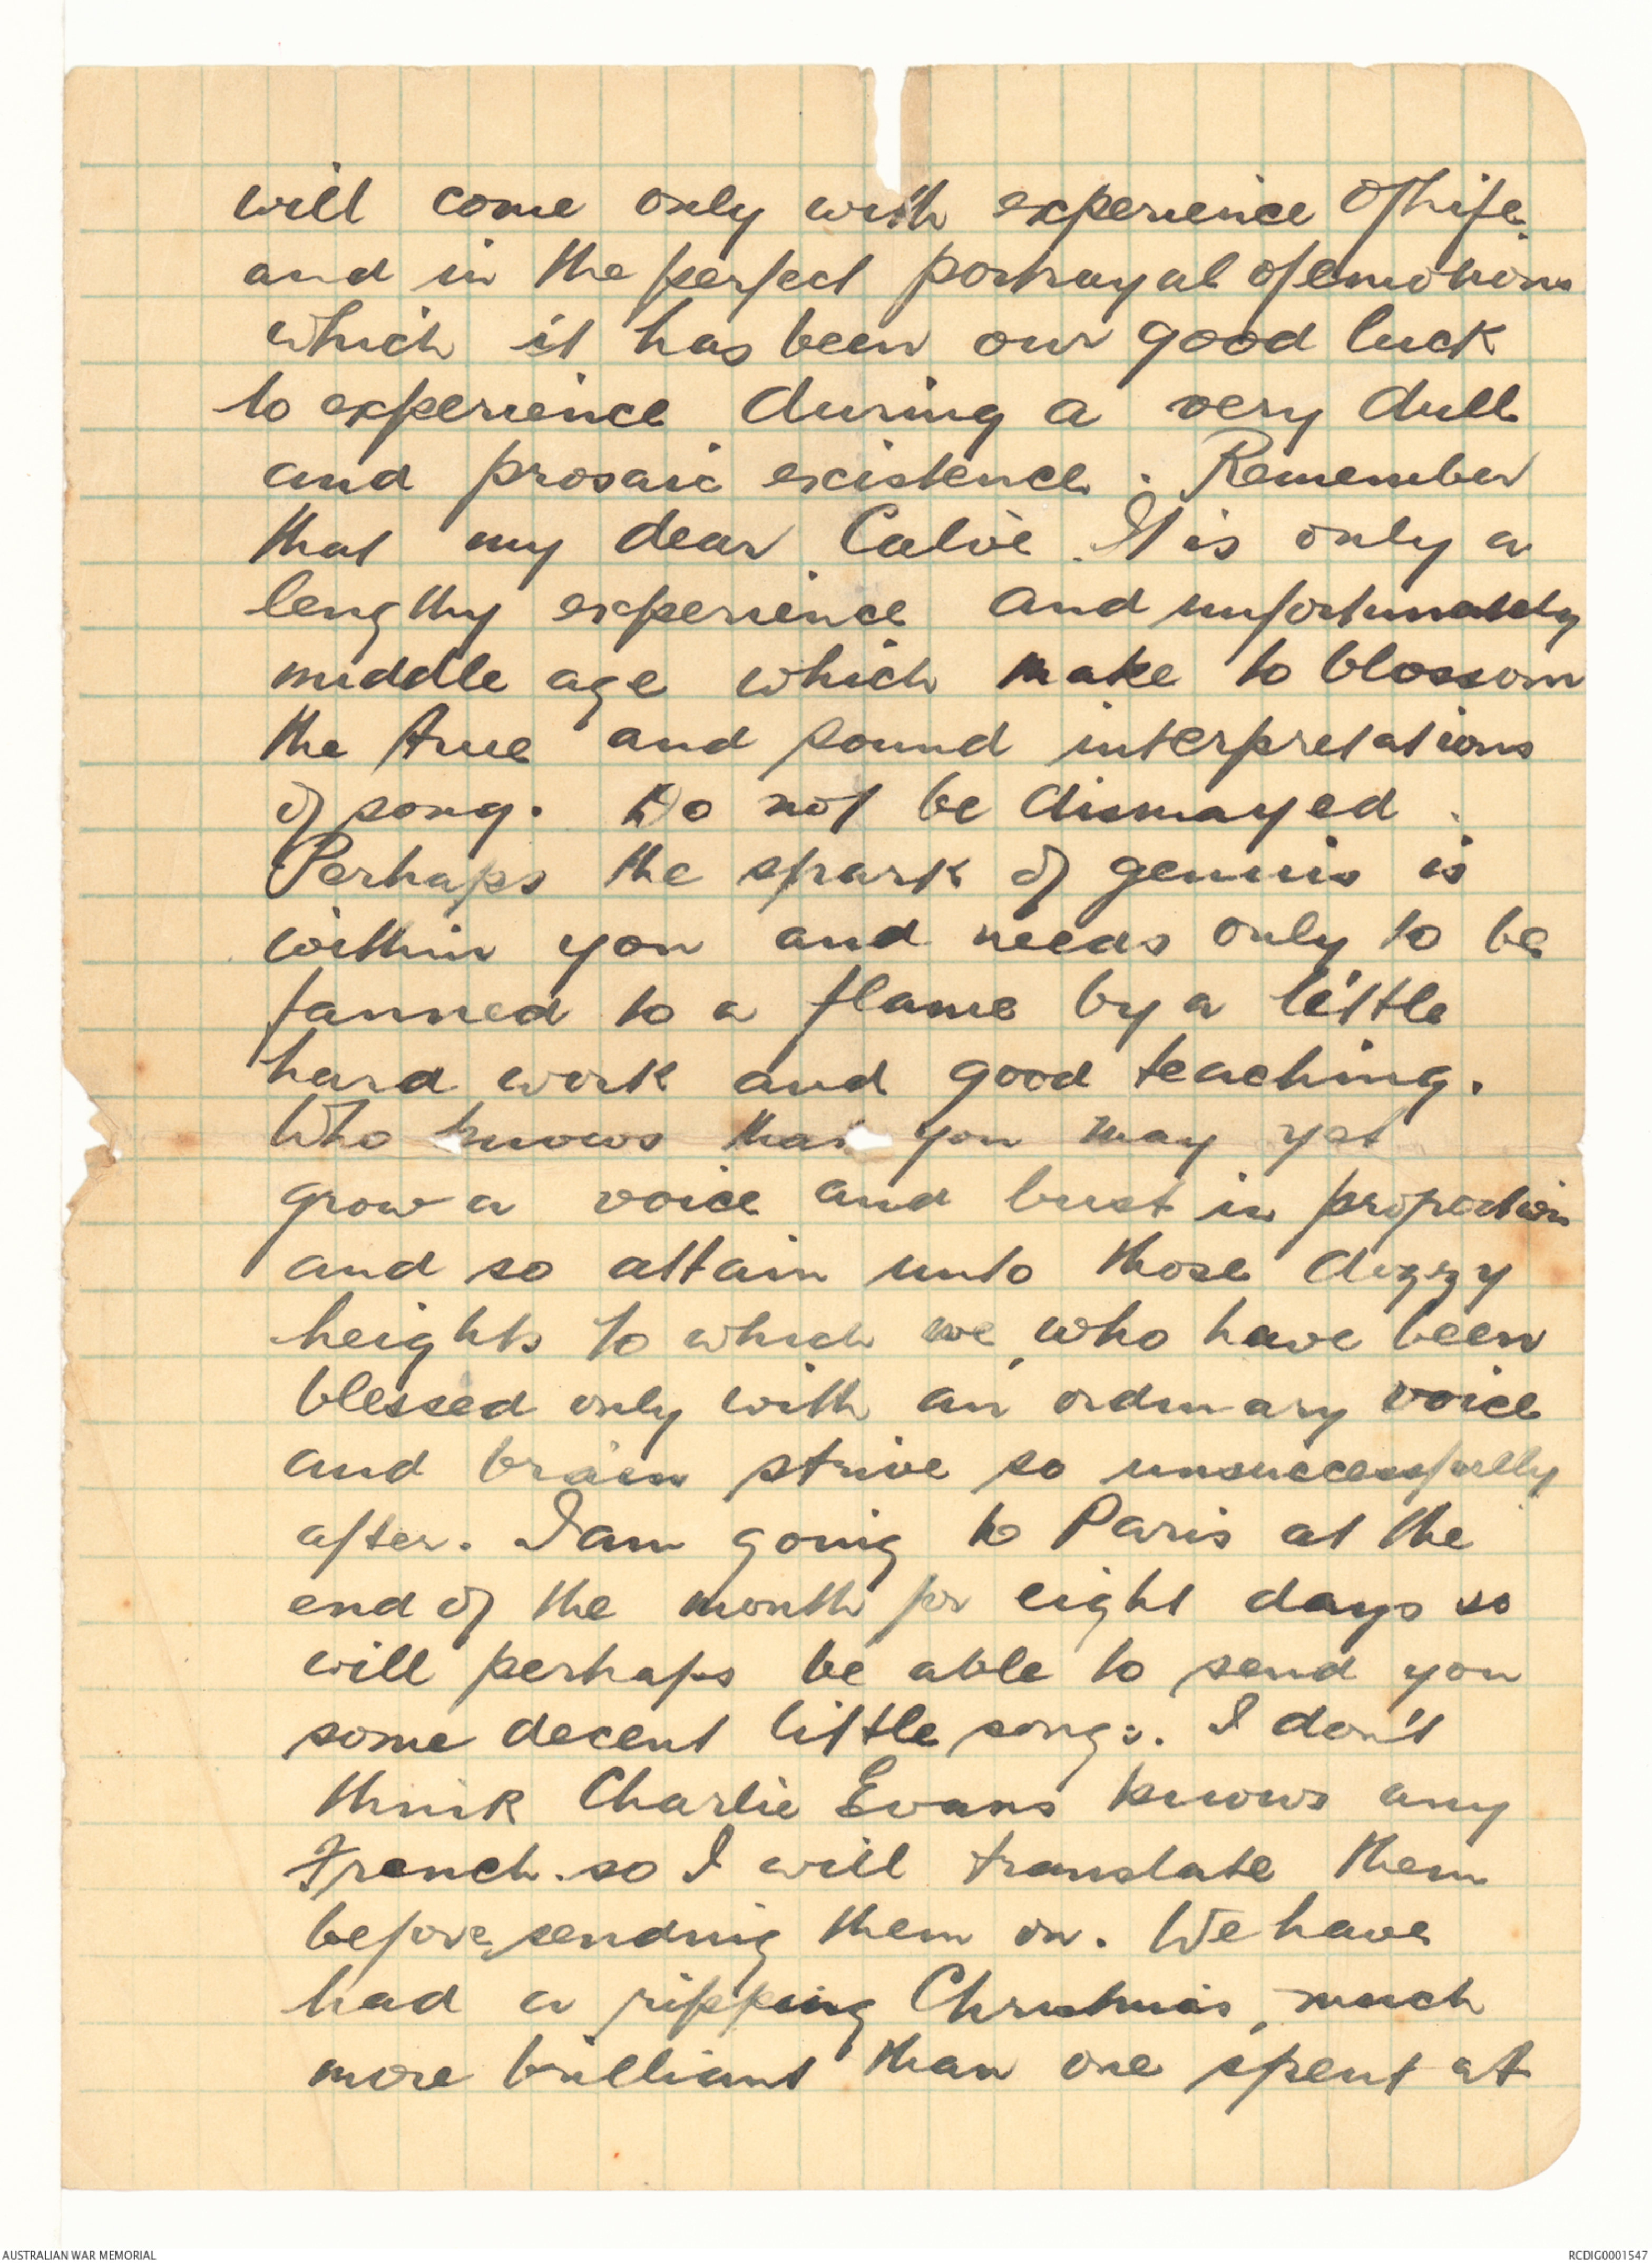 will come only with experience of life
and in the perfect portrayal of emotions
which it has been our good luck
to experience during a very dull
and prosaic existence. Remember
that my dear Calvè. It is only a
lengthy experience and unfortunately
middle age which make to blossom
the true and sound interpretations
of song. Do not be dismayed.
Perhaps the spark of genius is
within you and needs only to be
fanned to a flame by a little
hard work and good teaching.
Who knows that you may yet
grow a voice and bust in proportion
and so attain unto those dizzy
heights to which we, who have been
blessed only with an ordinary voice
and brain strive so unsuccessfully
after. I am going to Paris at the
end of the month for eight days so
will perhaps be able to send you
some decent little songs. I don't
think Charlie Evans knows any
French. so I will translate them
before sending them on. We have
had a ripping Christmas, much
more brilliant than one spent at
AUSTRALIAN WAR MEMORIAL
RCDIG0001547